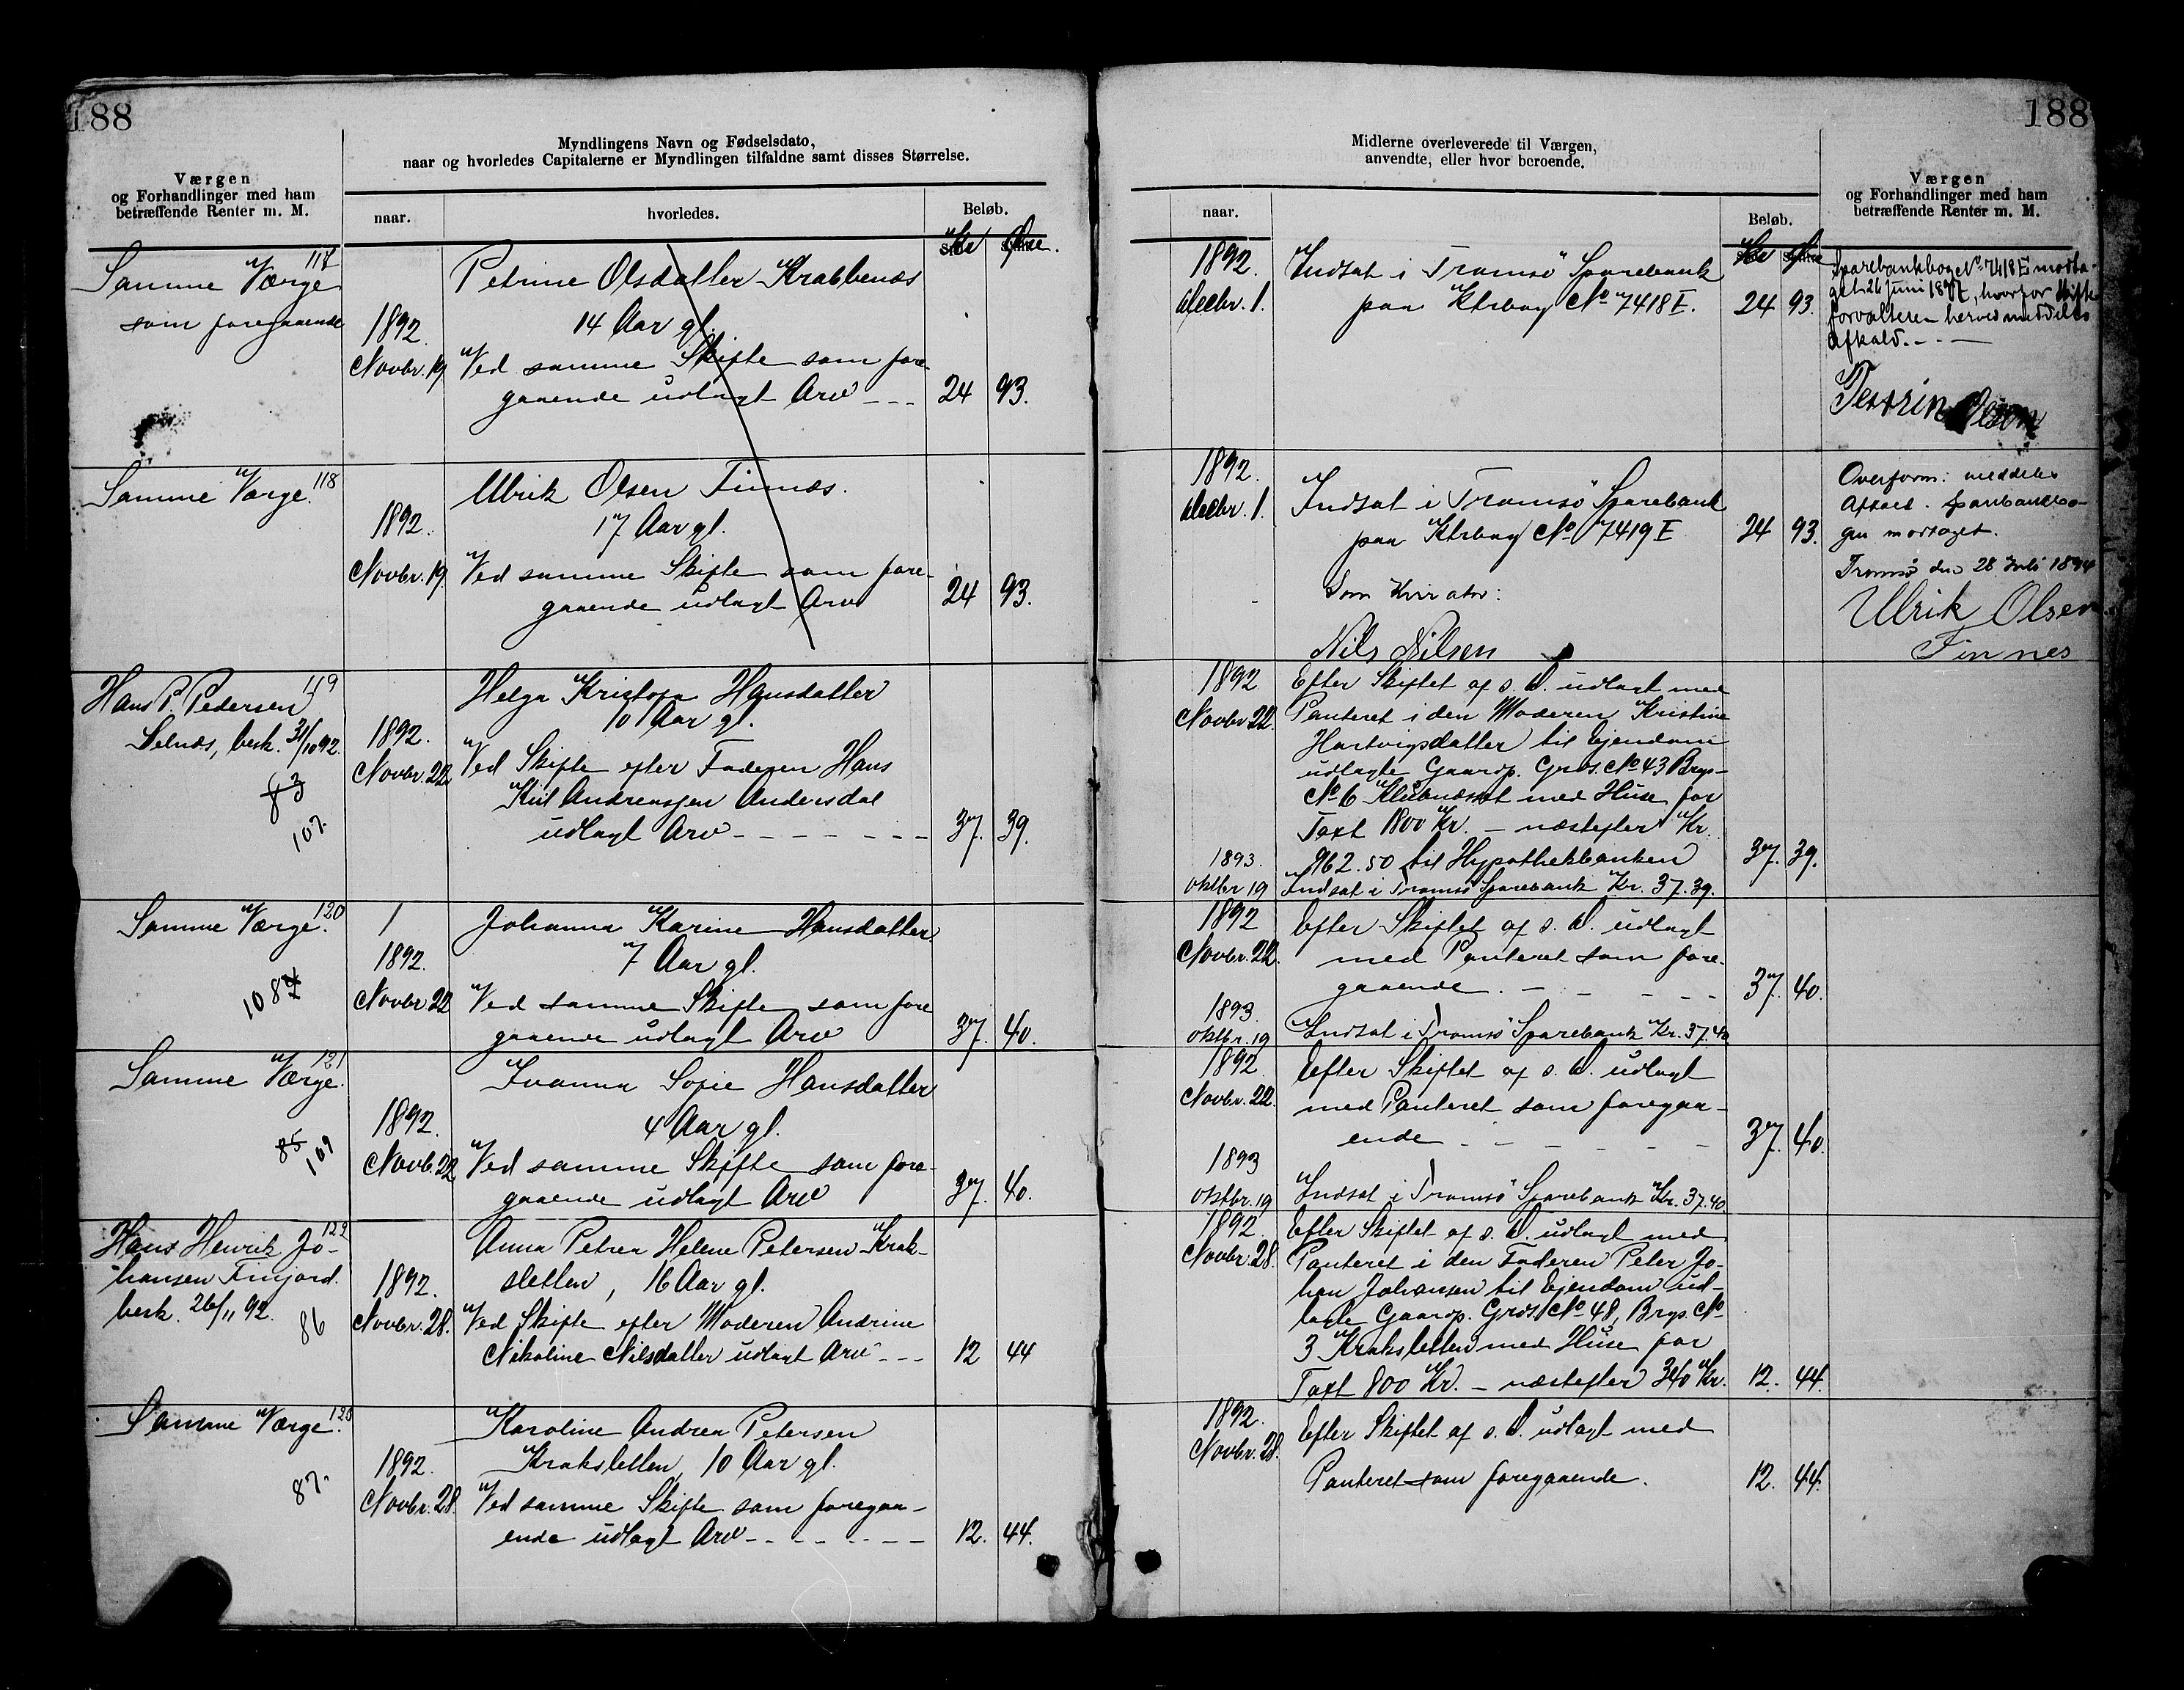 188
Myndlingens Navn og Fødselsdato,
naar og hvorledes Capitalerne er Myndlingen tilfaldne samt disses Størrelse.
Værgen
og Forhandlinger med ham
betræffende Renter m. M.
naar.
hvorledes.
Beløb.
Kr Øre.
Samme Værge 117
som foregaaende
1892
Novbr. 19
Petrine Olsdatter Krabbenæs
14 Aar gl.
Ved samme Skifte som fore-
gaaende udlagt Arv - - - 24 93.
Samme Værge. 118
1892.
Novbr. 19
Ulrik Olsen Finnæs.
17 Aar gl.
Ved samme Skifte som fore-
gaaende udlagt Arv 24 93.
Hans P. Pedersen 119
Selnæs, besk. 31/10 92.
83
107.
1892.
Novbr. 22
Helga Kristofa Hansdatter
10 Aar gl.
Ved Skifte efter Faderen Hans
Andreassen Andersdal
udlagt Arv - - - - - - - 37. 39.
Samme Værge. 120
108
1892.
Novbr 22
Johanna Karine Hansdatter.
7 Aar gl.
Ved samme Skifte som fore
gaaende udlagt Arv 37. 40.
Samme Værge. 121
85 109
1892.
Novb. 22
Ivanna Sofie Hansdatter
4 Aar gl.
Ved samme Skifte som fore-
gaaende udlagt Arv 37. 40.
Hans Henrik Jo- 122
hansen Finfjord.
besk. 26/11 92.
86
1892.
Novbr. 28.
Anna Petrea Helene Petersen Krak-
sletten, 16 Aar gl.
Ved Skifte efter Moderen Andrine
Nikoline Nilsdatter udlagt Arv - - - 12 44
Samme Værge. 123
87.
1892.
Novbr. 28.
Karoline Andrea Petersen
Kraksletten, 10 Aar gl.
Ved samme Skifte som foregaa-
ende udlagt Arv - - - - - - - 12. 44.
188
Midlerne overleverede til Værgen,
anvendte, eller hvor beroende.
naar.
Beløb.
Værgen
og Forhandlinger med ham
betræffende Renter m. M.
1892.
Decbr. 1.
Indsat i Tromsø Sparebank
paa Ktrbog No 7418 E. 24 93.
Sparebankbog No 7418 E modta-
get 26 Juni 1897, hvorfor Skifte
forvalteren herved meddeles
Afkald. - - -
Petrine Olsen
1892.
Decbr. 1.
Indsat i Tromsø Sparebank
paa Ktrbog No 7419 E 24 93.
Som Kurator:
Nils Nilsen
Overform: meddeles
Afkald. Sparebankbo-
gen modtaget.
Tromsø den 28 Juli 1894
Ulrik Olsen
Finnes
1892
Novbr 22.
Efter Skiftet af s. D. udlagt med
Panteret i den Moderen Kristine
Hartvigsdatter til Ejendom
udlagte Gaardp. Grds. No 43 Brgs-
No 6 med Huse for
Taxt 1800 Kr. - næstefter Kr.
962.50 til Hypothekbanken 37. 39.
1893.
oktbr 19 Indsat i Tromsø Sparebank Kr. 37.39.
1892
Novbr. 22.
Efter Skiftet af s. D. udlagt
med Panteret som fore-
gaaende. - - - - - 37. 40.
1893.
oktbr. 19 Indsat i Tromsø Sparebank Kr. 37.40
1892
Novbr. 22.
Efter Skiftet af s. D. udlagt
med Panteret som foregaa-
ende - - - - - - 37. 40.
1893
oktbr. 19 Indsat i Tromsø Sparebank Kr. 37.40.
1892.
Novbr 28.
Efter Skiftet af s. D. udlagt med
Panteret i den Faderen Peter Jo-
han Johansen til Ejendom ud-
lagte Gaardp. Grds. No 48, Brgs. No
3 Kraksletten med Huse for
Taxt 800 Kr. - næstefter 340 Kr. 12. 44.
1892.
Novbr. 28.
Efter Skiftet af s. D. udlagt med
Panteret som foregaaende. 12. 44.